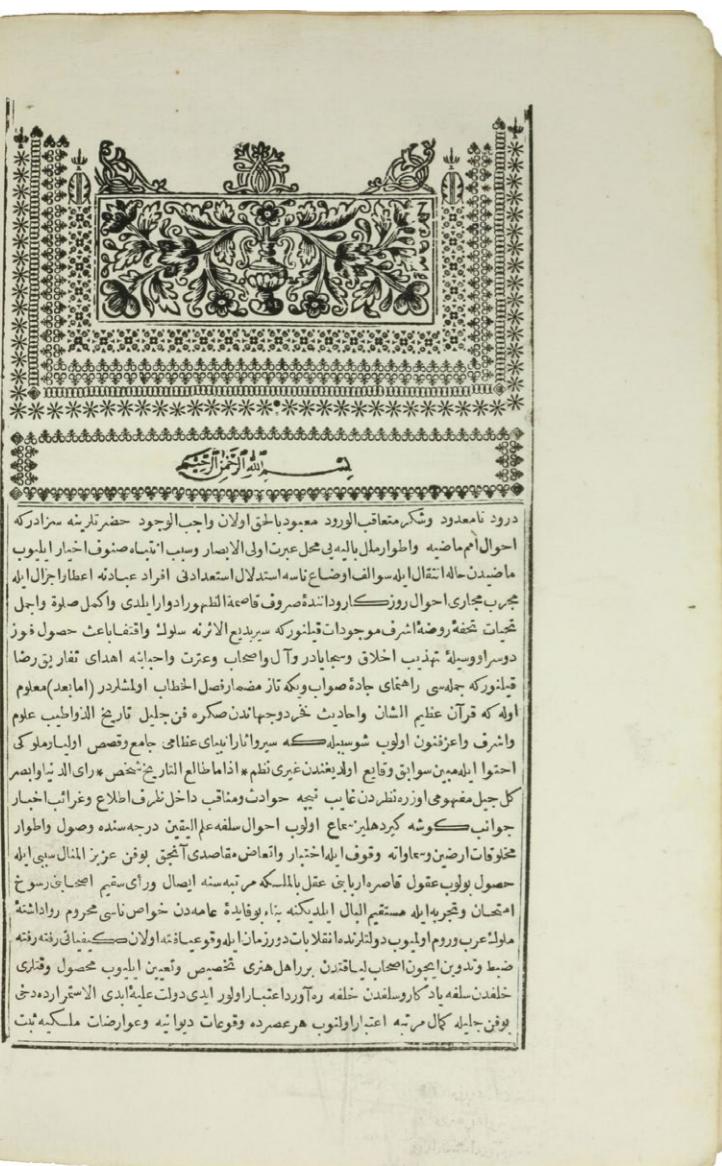 بسم الله الرحمن الرحيم
درود نامعدود وشكر متعاقب الورود معبود بالحق اولان واجب الوجود حضرتلرينه سزادركه
احوال امم ماضيه واطوار ملل باليه يى محل عبرت اولى الابصار وسبب انتباه صنوف اخبار ايليوب
ماضيدن حاله انتقال ايله سوالف اوضاع ناسه استدلال استعدادنى افراد عبادنه اعطا واجزال ايله
مجرب مجارى احوال روزكار وداننده صروف قاصمة الظهور ادوار ايلدى واكمل صلوة واجمل
تحيات تحفه روضه اشرف موجودات قيلنوركه سير بديع الاثرنه سلوك واقتفا باعث حصول فوز
دوسرا ووسيله تهذيب اخلاق وسجايادر وآل واصحاب وعترت واحبابنه اهداى تفاريق رضا
قيلنوركه جمله سى راهنماى جاده صواب ويكه تاز مضمار فصل الخطاب اولمشلردر (امابعد) معلوم
اوله كه قرآن عظيم الشان واحاديث فخر دوجهاندن صكره فن جليل تاريخ الذ واطيب علوم
واشرف واعز فنون اولوب شوسببله كه سير وآثار انبياى عظامى جامع وقصص اوليا وملوكى
احتوا ايله مبين سوابق وقايع اولديغندن غيرى نظم * اذا ما طالع التاريخ شخص * راى الدنيا وابصر
كل جيل مفهومى اوزره نظردن غايب نيجه حوادث ومناقب داخل ظرف اطلاع وغرائب اخبار
جوانب كوشه كير دهليز سماع اولوب احوال سلفه علم اليقين درجه سنده وصول واطوار
مخلوقات ارضين وسماواته وقوف ايله اختبار واتعاض مقاصدى آنجق بوفن عزيز المنال سببى ايله
حصول بولوب عقول قاصره اربابنى عقل بالملكه مرتبه سنه ايصال وراى سقيم اصحابنى رسوخ
امتحان وتجربه ايله مستقيم البال ايلديكنه بناء بوفايده عامه دن خواص ناسى محروم رواداشته
ملوك عرب وروم اولميوب دولتلرنده انقلابات دور زمان ايله وقوعيافته اولان كيفياتى رفته رفته
ضبط وتدوين ايچون اصحاب لياقتدن برر اهل هنرى تخصيص وتعيين ايليوب محصول وقتلرى
خلفدن سلفه يادكار وسلفدن خلفه ره آورد اعتبار اولور ايدى دولت عليه ابدى الاستمرارده دخى
بوفن جليله كمال مرتبه اعتبار اولنوب هر عصرده وقوعات ديوانيه وعوارضات ملكيه ثبت